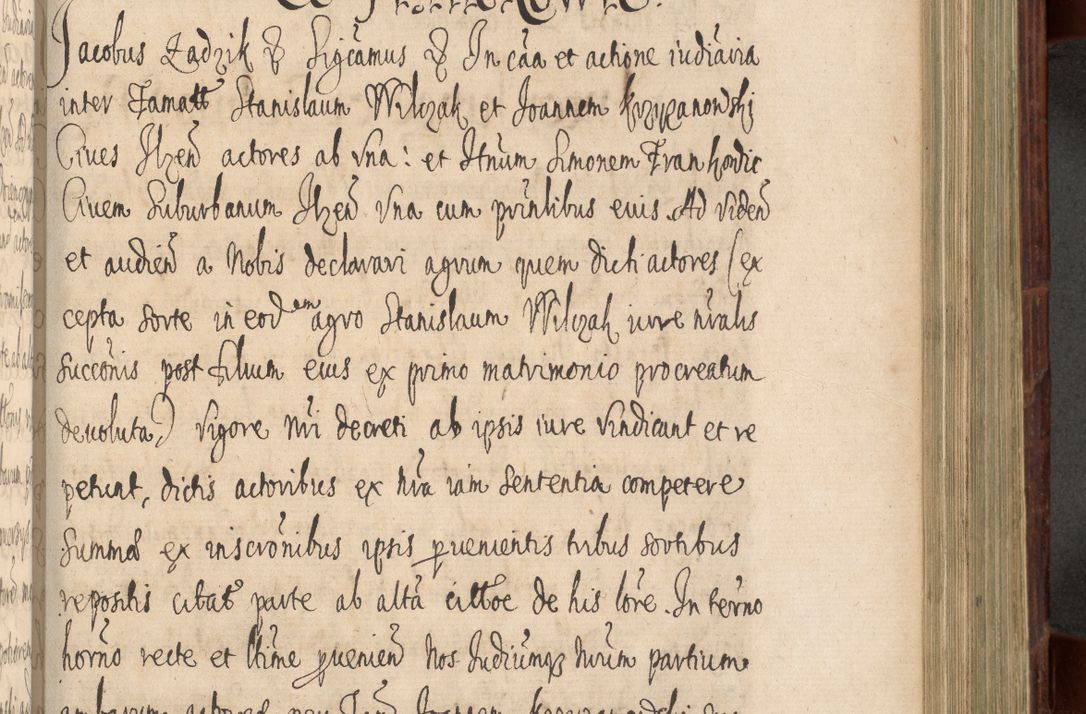 Jacobus Zadzik & Sigcamus & In cãa et actione iudiãria
inter Famatt Stanislaum Wilczak et Joannem Krzyzanowski
Ciues Ilzeñ actores ab vna: et Itñum Simonem Frankowic
Ciuem Suburbanum Ilzeñ vna cum prinlibus euis Ad videñ
et audieñ a Nobis declarari agrum quem dicti actores (ex
cepta sorte in eodem agro Stanislaum Wilczak iure nrãlis
succonis post filium eius ex primo matrimonio procreatum
deuoluta) vigore nri decreti ab ipsis iure vindicant et re
petunt, dictis actoribus ex nrã iam sententia competere
Summas ex inscrõnibus ipsis puenientis tribus sortibus
repositis citat parte ab altã cittõe de his lõre. In terño
horño recte et ltime pueniẽn Nos Judiũmq nrũm partium